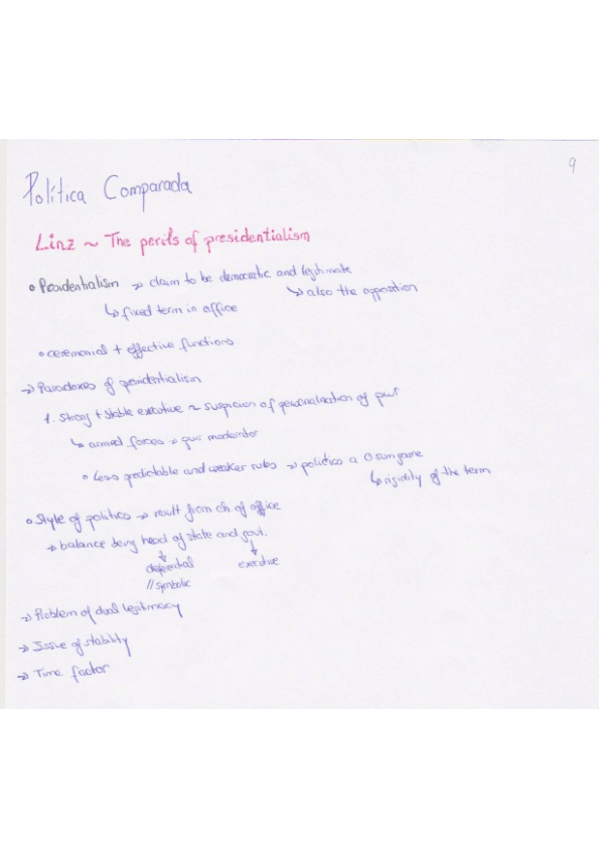 9
Política Comparada
Linz ~ The perils of presidentialism
• Presidentialism → claim to be democratic and legitimate
↳ also the opposition
↳ fixed term in office
• ceremonial + effective functions
→ Paradoxes of presidentialism
1. Strong + stable executive ~ suspicion of personalization of pwr
↳ armed forces → pwr moderator
• Less predictable and weaker rules → politics a 0 sum game
↳ rigidity of the term
• Style of politics → result from ch of office
→ balance being head of state and govt.
deferential executive
// symbolic
→ Problem of dual legitimacy
→ Issue of stability
→ Time factor